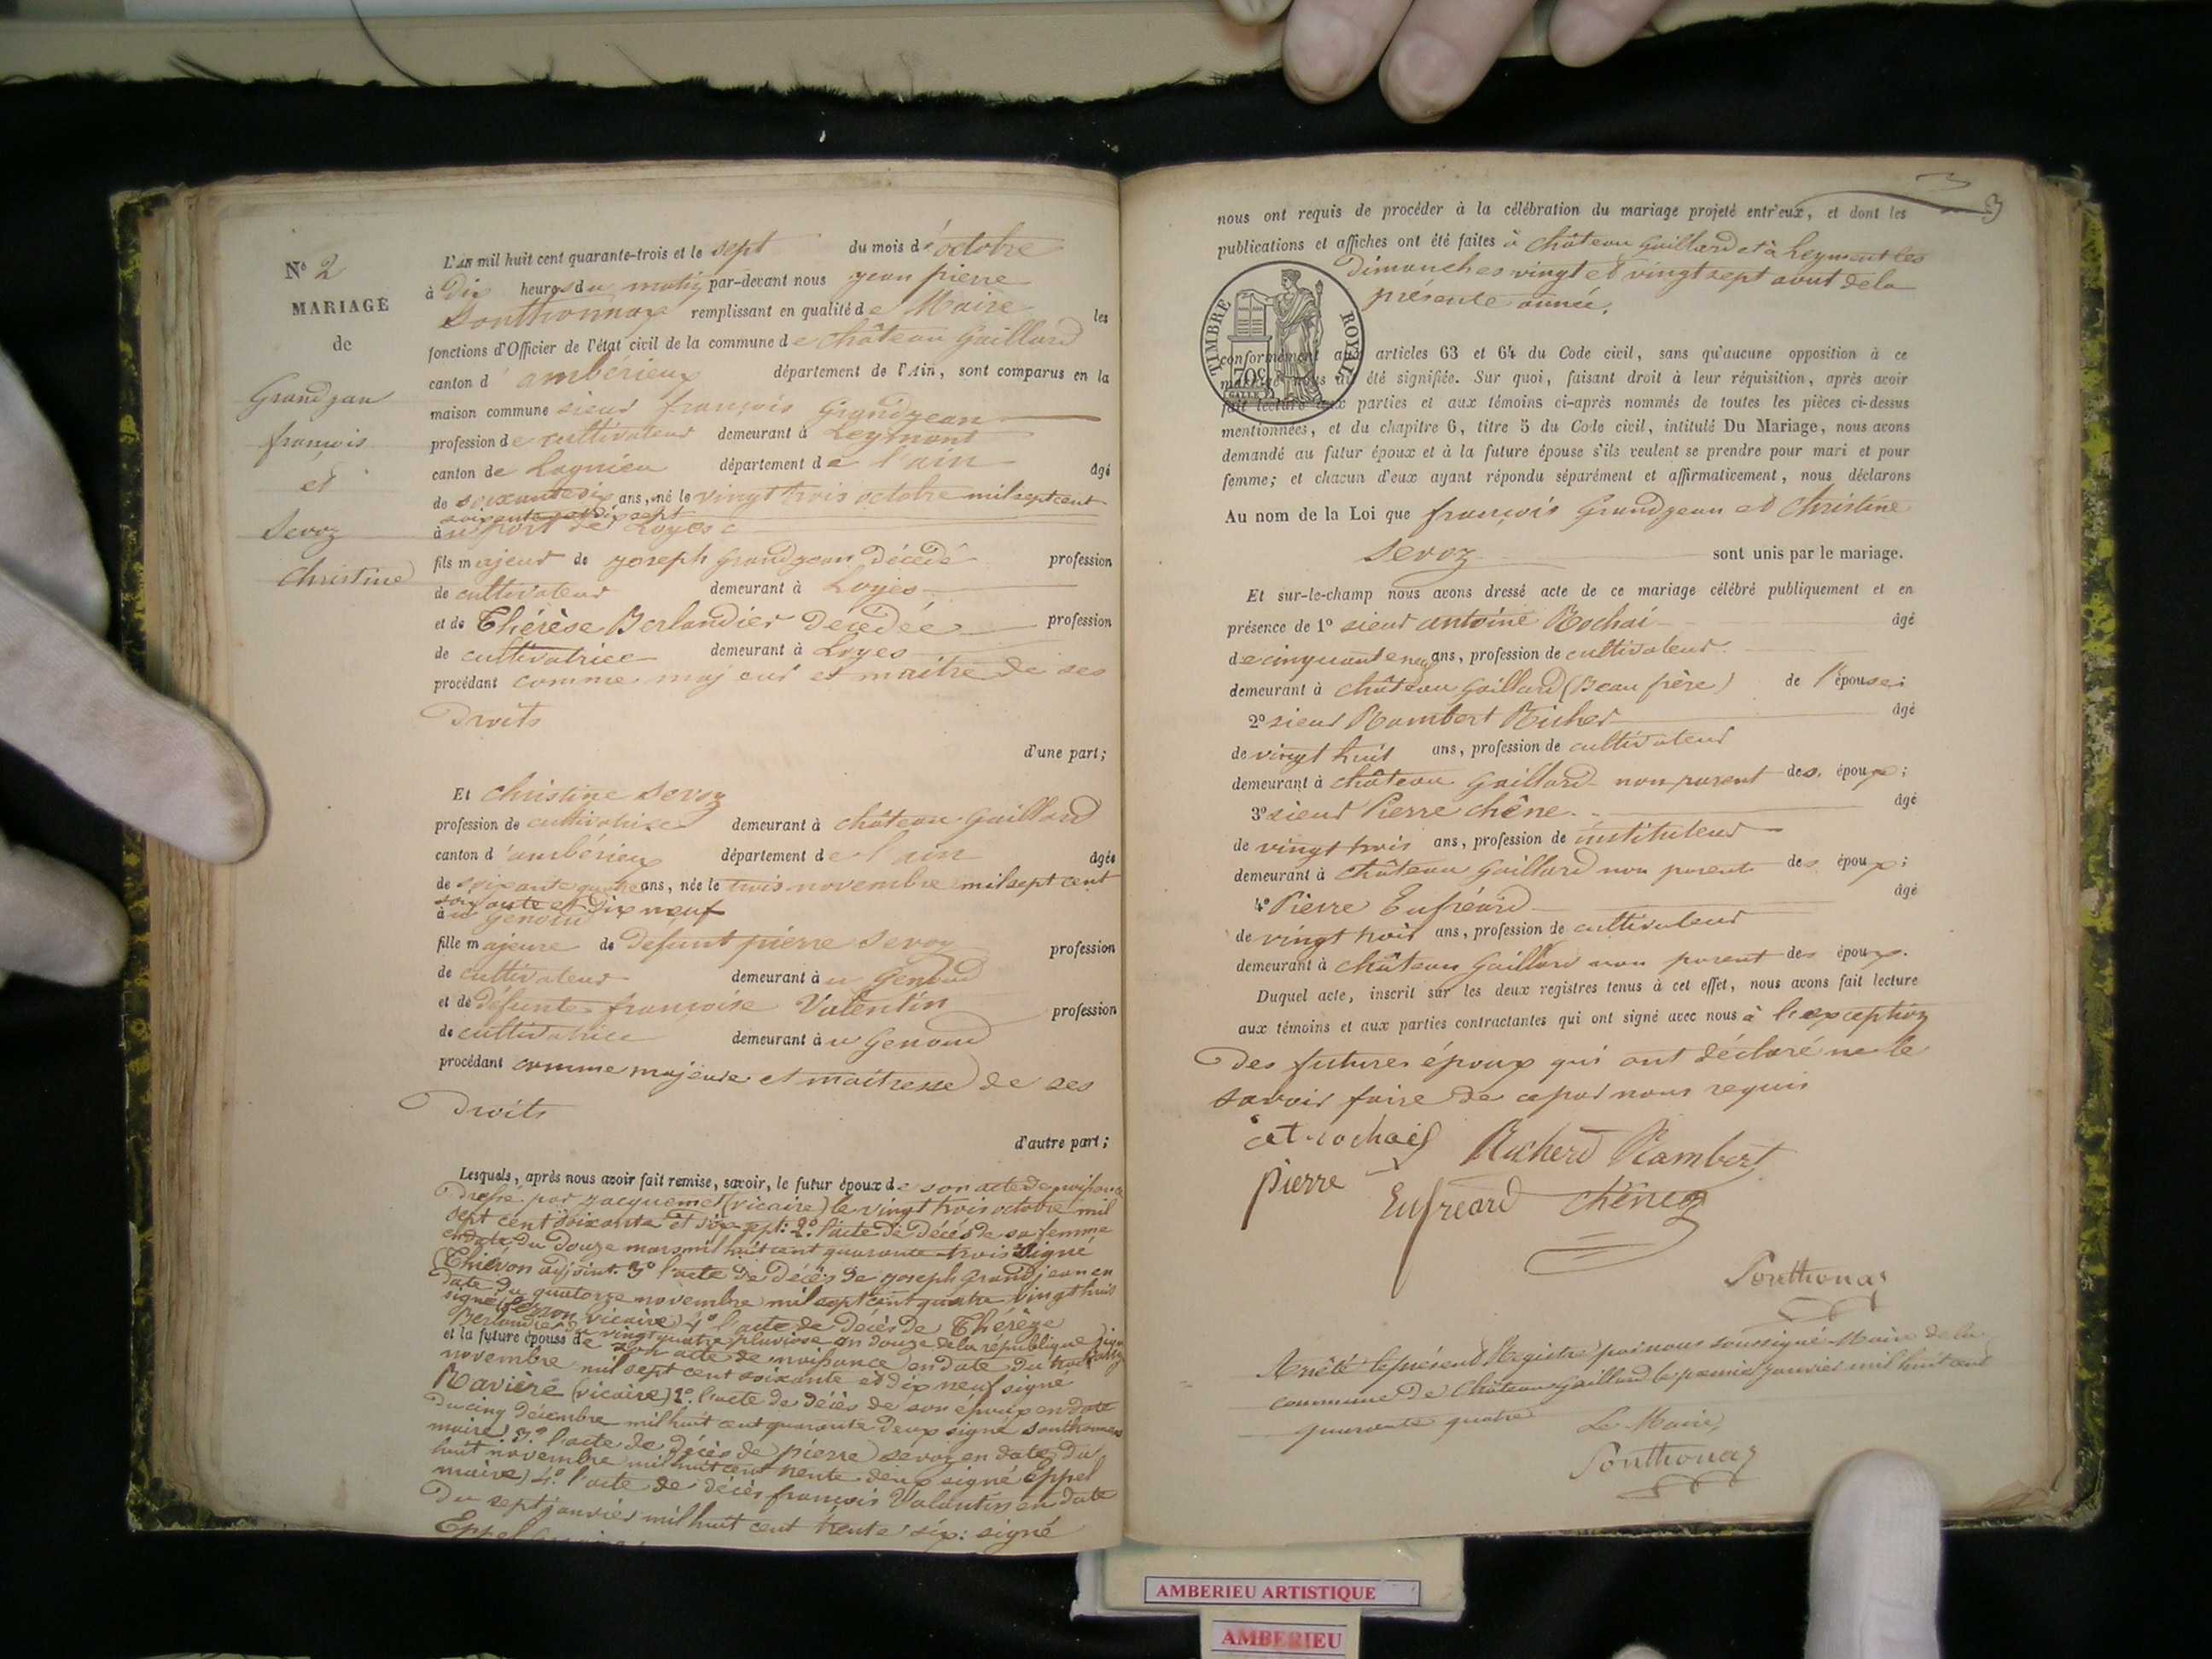 N° 2
MARIAGE
de
Grandjean
françois
et
Sevoz
christine
L'AN mil huit cent quarante-trois et le sept du mois d'octobre
à dix heures du matin par-devant nous jean pierre
Ponthonnay remplissant en qualité de Maire les
fonctions d'Officier de l'état civil de la commune de château Gaillard
canton d'ambérieux département de l'Ain, sont comparus en la
maison commune sieur françois Grandjean
profession de cultivateur demeurant à Leyment
canton de Lagnieu département de l'ain âgé
de soixante six ans, né le vingt trois octobre mil sept cent
soixante et dix sept
au port de Loyes
fils majeur de joseph grandjean décédé profession
de cultivateur demeurant à Loyes
et de Thérèse Berlandier décédée profession
de cultivatrice demeurant à Loyes
procédant comme majeur et maitre de ses
Droits
d'une part;
Et christine sevoz
profession de cultivatrice demeurant à château Gaillard
canton d'ambérieux département de l'ain âgée
de soixante quatre ans, née le trois novembre mil sept cent
soixante et dix neuf
au Genoud
fille majeure de défunt pierre sevoz profession
de cultivateur demeurant au Genoud
et de défunte françoise Valentin profession
de cultivatrice demeurant au Genoud
procédant comme majeure et maitresse de ses
Droits
d'autre part;
Lesquels, après nous avoir fait remise, savoir, le futur époux de son acte de naissance
Dressé par jacquemet (vicaire) le vingt trois octobre mil
sept cent soixante et dix sept: 2° l'acte de décès de sa femme
en date du douze mars mil huit cent quarante trois signé
Thiévon adjoint. 3° l'acte de décès de joseph Grandjean en
date du quatorze novembre mil sept cent quatre vingt huit
signé vicaire) 4° l'acte de décès de Thérèse
Berlandier du vingt quatre pluviose an douze de la république
et la future épouse de son acte de naissance en date du trois
novembre mil sept cent soixante et dix neuf signé
Ravière (vicaire) 2°. l'acte de décès de son époux en date
du cinq décembre mil huit cent quarante deux signé
maire) 3° l'acte de décès de pierre sevoz en date du
huit novembre mil huit cent trente deux signé Eppel
maire) 4° l'acte de décès françois Valentin en date
Du sept janvier mil huit cent trente six: signé
Eppel
3
nous ont requis de procéder à la célébration du mariage projeté entr'eux, et dont les
publications et affiches ont été faites à château Gaillard et à Leyment les
Dimanches vingt et vingt sept aout de la
présente année.
TIMBRE ROYAL
70c
conformément aux articles 63 et 64 du Code civil, sans qu'aucune opposition à ce
mariage nous ait été signifiée. Sur quoi, faisant droit à leur réquisition, après avoir
fait lecture aux parties et aux témoins ci-après nommés de toutes les pièces ci-dessus
mentionnées, et du chapitre 6, titre 5 du Code civil, intitulé Du Mariage, nous avons
demandé au futur époux et à la future épouse s'ils veulent se prendre pour mari et pour
femme; et chacun d'eux ayant répondu séparément et affirmativement, nous déclarons
Au nom de la Loi que françois Grandjean et Christine
sevoz sont unis par le mariage.
Et sur-le-champ nous avons dressé acte de ce mariage célébré publiquement et en
présence de 1° sieur antoine Rochai âgé
de cinquante neuf ans, profession de cultivateur
demeurant à château Gaillard (Beau frère) de l'épouse;
2° sieur Rambert Richer âgé
de vingt huit ans, profession de cultivateur
demeurant à château Gaillard non parent des époux;
3° sieur Pierre chêne âgé
de vingt trois ans, profession de instituteur
demeurant à château Gaillard non parent des époux;
4° Pierre Eufréard âgé
de vingt trois ans, profession de cultivateur
demeurant à château Gaillard non parent des époux.
Duquel acte, inscrit sur les deux registres tenus à cet effet, nous avons fait lecture
aux témoins et aux parties contractantes qui ont signé avec nous à l'exception
Des futures époux qui ont déclaré ne le
savoir faire de ce par nous requis
Richerd Rambert
Pierre Eufreard Chêne
Ponthonay
Arrêté le présent Registre par nous soussigné Maire de la
commune de Château Gaillard le premier janvier mil huit cent
quarante quatre
Le Maire,
Ponthonay
AMBERIEU ARTISTIQUE
AMBERIEU